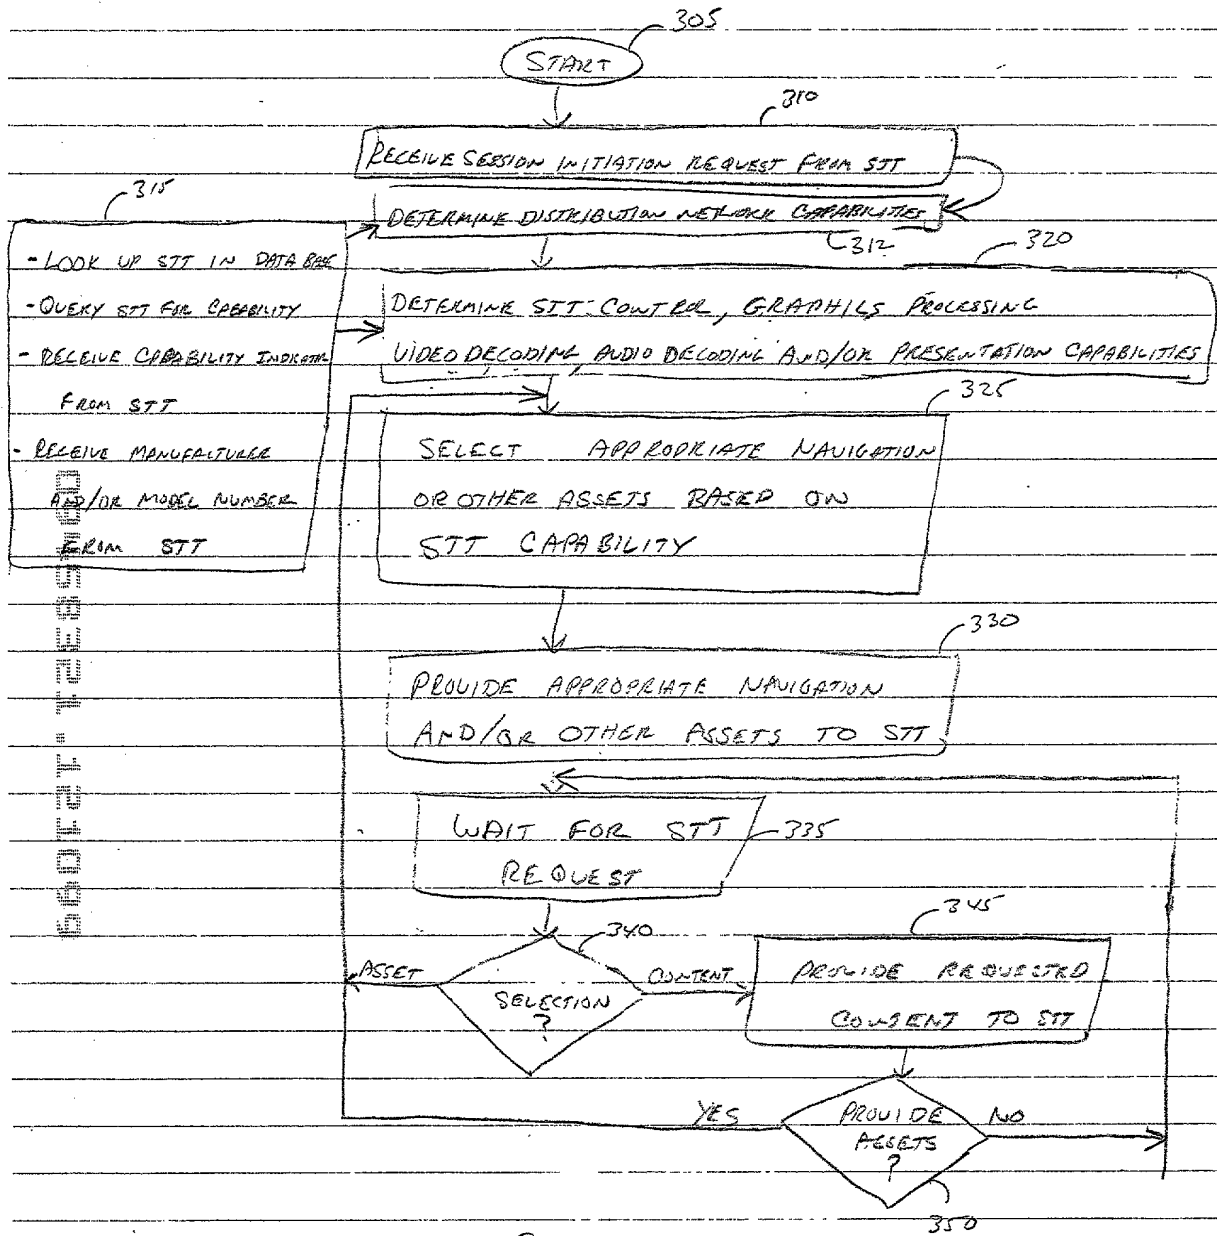 305
START
310
RECEIVE SESSION INITIATION REQUEST FROM STT
315
DETERMINE DISTRIBUTION NETWORK CAPABILITIES
312
320
- LOOK UP STT IN DATABASE
- QUERY STT FOR CAPABILITY
- RECEIVE CAPABILITY INDICATOR
FROM STT
- RECEIVE MANUFACTURER
AND/OR MODEL NUMBER
FROM STT
DETERMINE STT CONTROL, GRAPHICS PROCESSING
VIDEO DECODING, AUDIO DECODING AND/OR PRESENTATION CAPABILITIES
325
SELECT APPROPRIATE NAVIGATION
OR OTHER ASSETS BASED ON
STT CAPABILITY
330
PROVIDE APPROPRIATE NAVIGATION
AND/OR OTHER ASSETS TO STT
WAIT FOR STT
REQUEST
335
340
345
ASSET
SELECTION
?
CONTENT
PROVIDE REQUESTED
CONTENT TO STT
YES
PROVIDE
ASSETS
?
NO
350